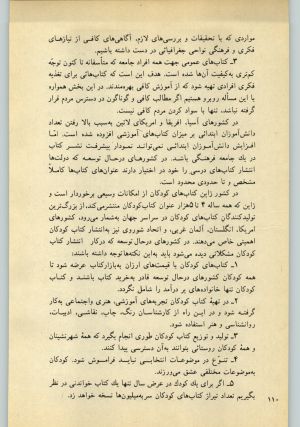 مواردی که با تحقیقات و بررسی‌های لازم، آگاهی‌های کافی از نیازهای
فکری و فرهنگی نواحی جغرافیائی در دست داشته باشیم.
۳ـ کتاب‌های عمومی جهت همه افراد جامعه که متأسفانه تا کنون توجه
کم‌تری به‌کیفیت آن‌ها شده است. هدف این است که کتاب‌هائی برای تغذیه
فکری افرادی تهیه شود که از آموزش کافی بهره‌مندند. در این بخش همواره
با این مسأله روبرو هستیم اگر مطالب کافی و گوناگون در دسترس مردم قرار
گرفته نباشد، تنها با سواد کردن مردم کافی نیست.
در کشورهای آسیا، افریقا و امریکای لاتین به‌سبب بالا رفتن تعداد
دانش‌آموزان ابتدائی بر میزان کتاب‌های آموزشی افزوده شده است. اما
افزایش دانش‌آموزان ابتدائی نمی‌تواند، نمودار پیشرفت نشر کتاب
در یك جامعه فرهنگی باشد. در کشورهای درحال توسعه که دولت‌ها
انتشار کتاب‌های درسی را خود در اختیار دارند عنوان‌های کتاب‌ها کاملاً
مشخص و تا حدودی محدود است.
در کشور ژاپن کتاب‌های کودکان از امکانات وسیعی برخوردار است و
ژاپن که همه ساله ۴ تا ۵هزار عنوان کتاب‌کودکان منتشرمی‌کند، از بزرگ‌ترین
تولیدکنندگان کتاب‌های کودکان در سراسر جهان به‌شمار می‌رود، کشورهای
امریکا، انگلستان، آلمان غربی، و اتحاد شوروی نیز به‌انتشار کتاب کودکان
اهمیتی خاص می‌دهند. در کشورهای درحال توسعه که درکار انتشار کتاب
کودکان مشکلاتی دیده می‌شود باید به‌این نکته‌ها توجه داشته باشند:
۱ـ کتاب‌های کودکان با قیمت‌های ارزان به‌بازارکتاب عرضه شود تا
همه کودکان کشورهای درحال توسعه قادر به‌خرید کتاب باشند و کتاب
کودکان تنها خانواده‌های پر درآمد را شامل نگردد.
۲ـ در تهیهٔ کتاب کودکان تجربه‌های آموزشی، هنری واجتماعی به‌کار
گرفته شود و در این راه از کارشناسان رنگ، چاپ، نقاشی، ادبیات،
روانشناسی و هنر استفاده شود.
۳ـ تولید و توزیع کتاب کودکان طوری انجام بگیرد که همهٔ شهرنشینان
و همهٔ کودکان روستائی بتوانند به‌آن دسترسی پیدا کنند.
۴ـ تنوع در موضوعات انتخابی نباید فراموش شود. کودکان
به‌موضوعات مختلفی عشق می‌ورزند.
۵ـ اگر برای یك کودك در عرض سال تنها یك کتاب خواندنی در نظر
بگیریم تعداد تیراژ کتاب‌های کودکان سربه‌میلیون‌ها نسخه خواهد زد.
۱۱۰